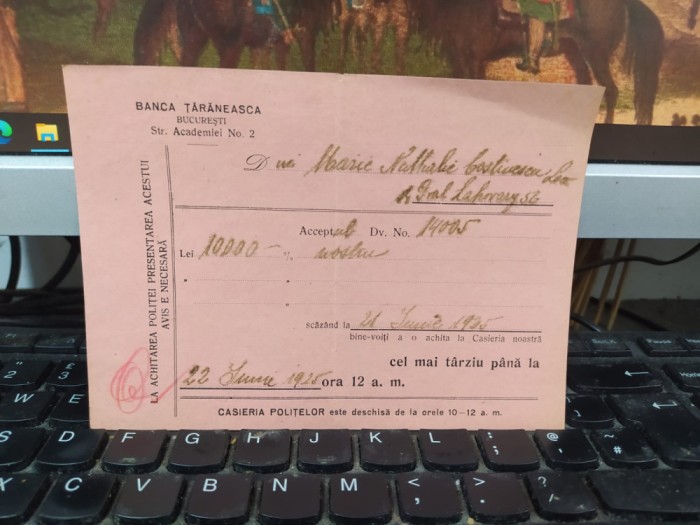 BANCA ȚĂRĂNEASCA
BUCUREȘTI
Str. Academiei No. 2
LA ACHITAREA POLIȚEI PRESENTAREA ACESTUI
AVIS E NECESARĂ
D nei Marie Nathalie Costinescu
Gral Lahovary 56
Acceptul Dv. No. 14005
Lei 10.000 — % nostru
scăzând la 21 Iunie 1925
bine-voiți a o achita la Casieria noastră
cel mai târziu până la
22 Iunie 1925 ora 12 a. m.
CASIERIA POLIȚELOR este deschisă de la orele 10-12 a. m.
2 3 4
Home
S D F G H J K L : ;
X C V B N M < , > . ? /